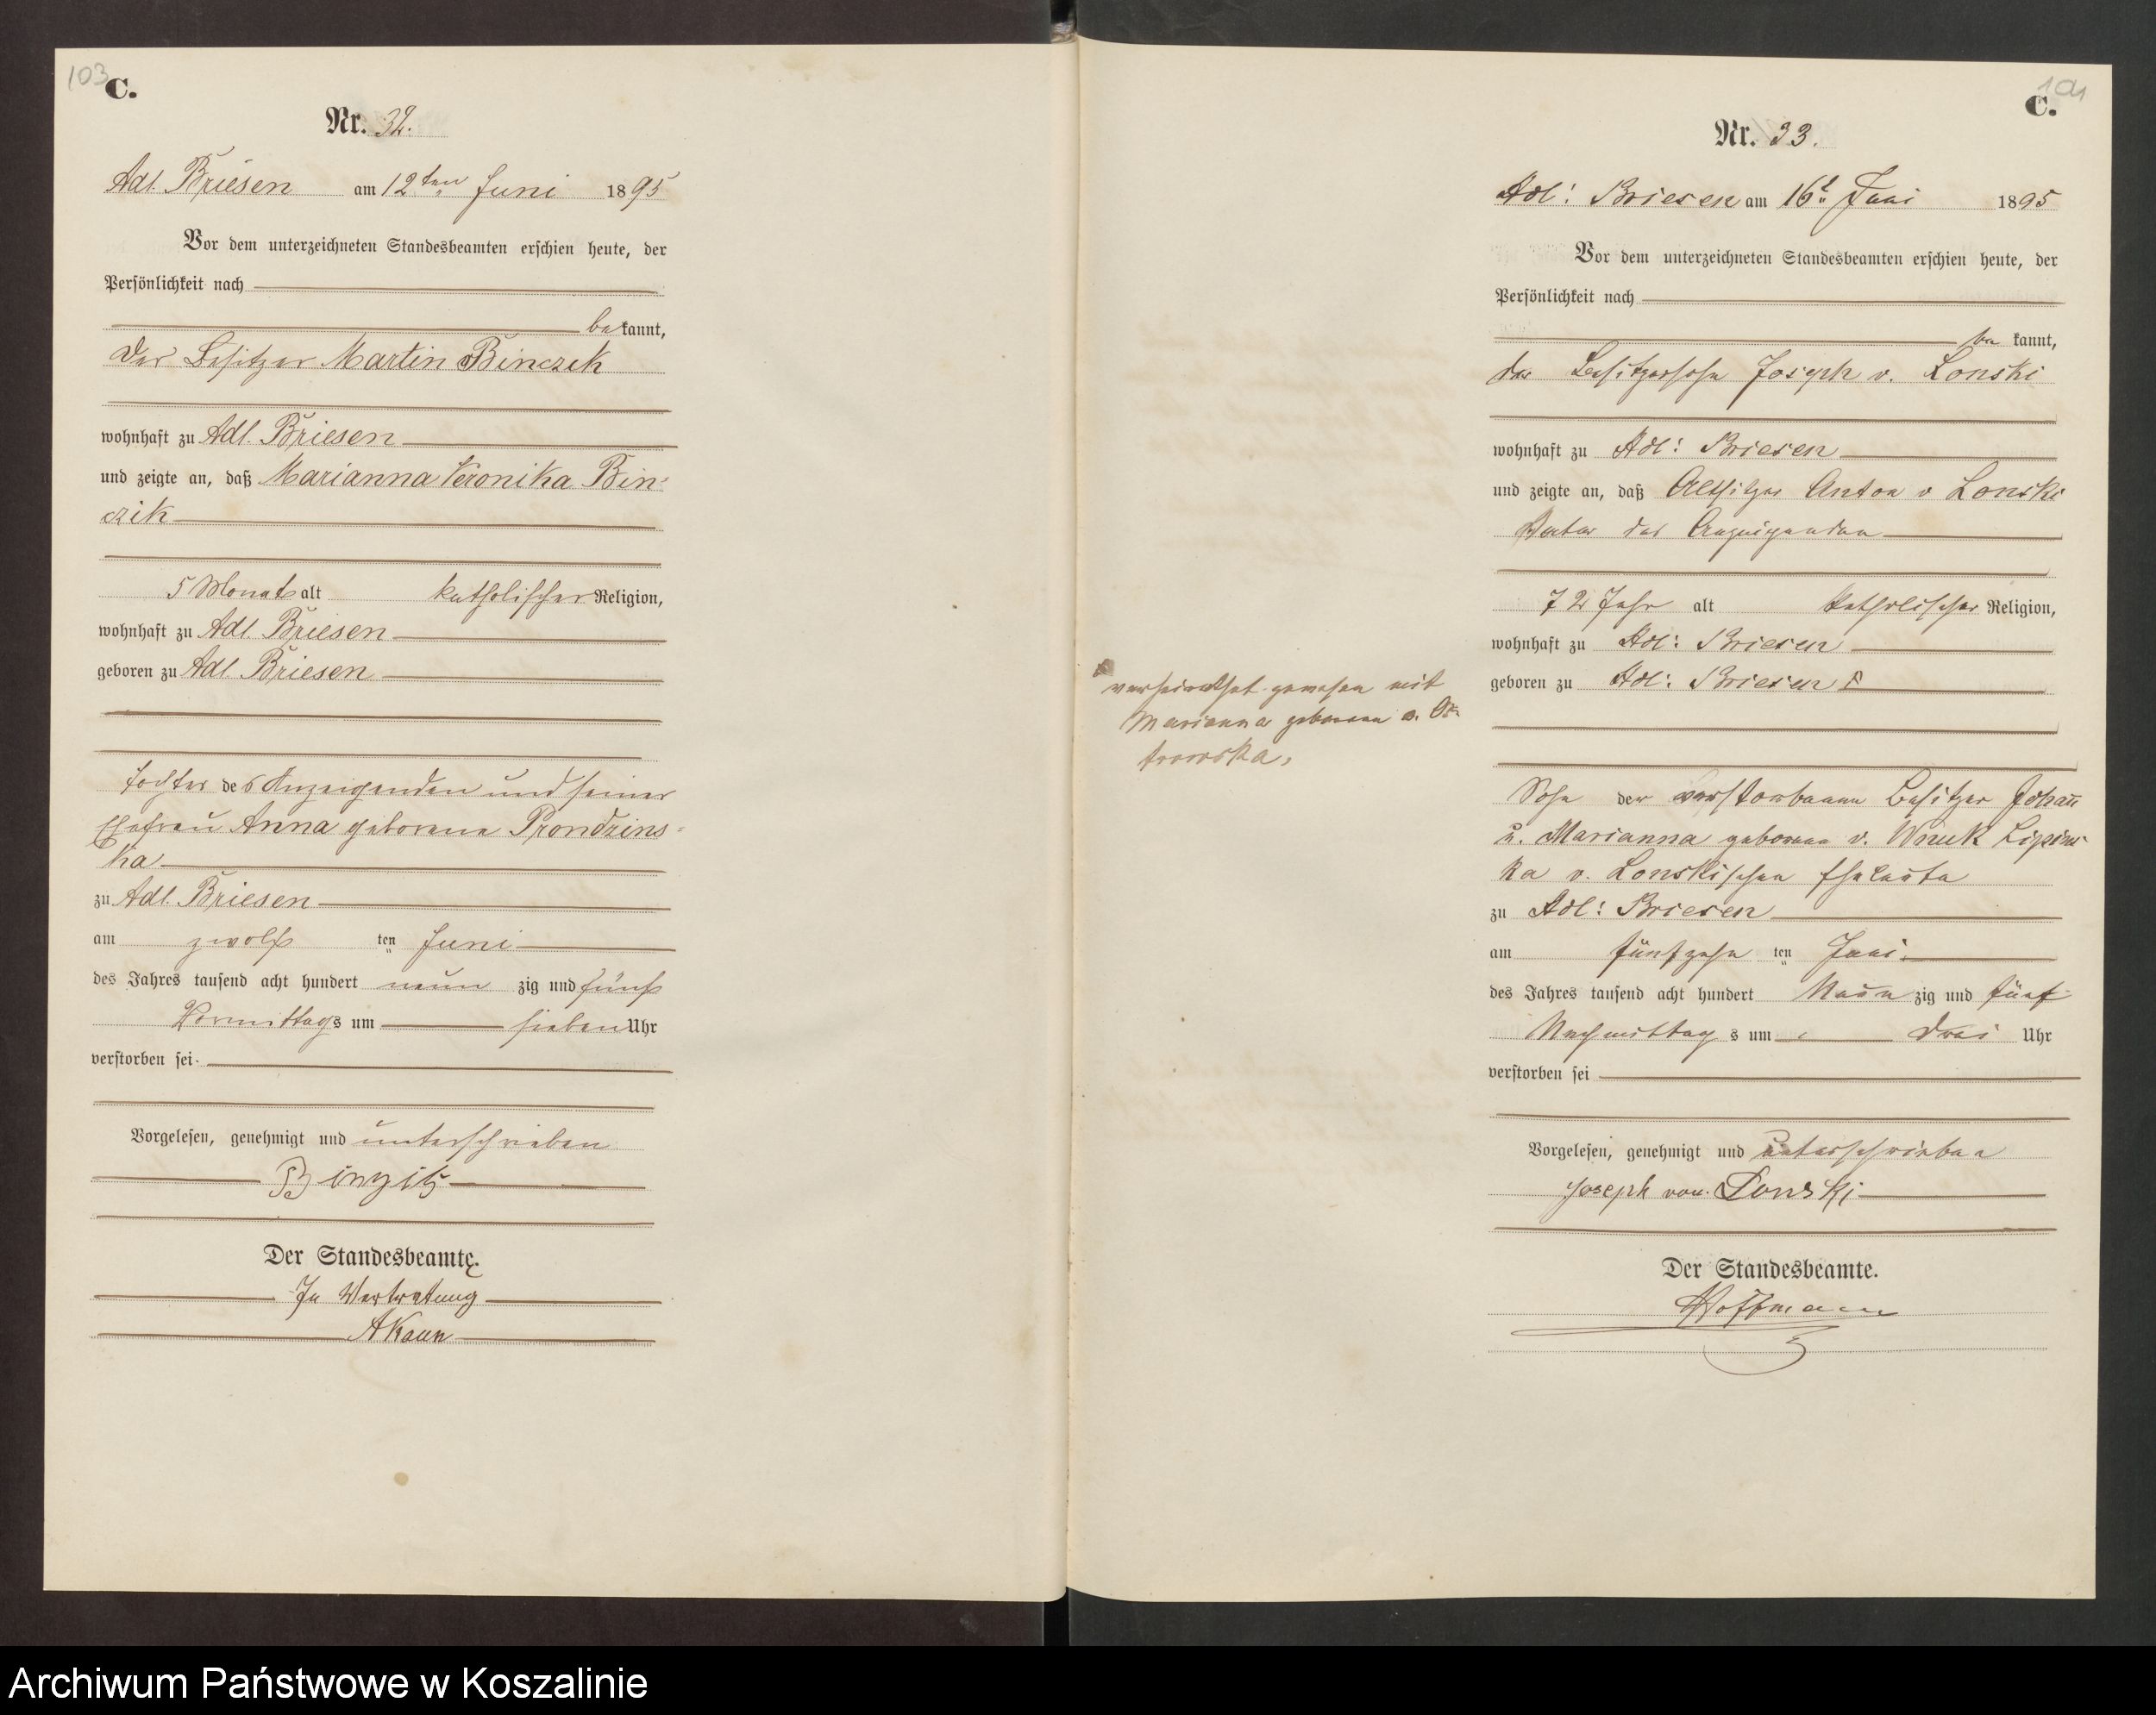 103
C.
Nr. 32.
Adl. Briesen am 12ten Juni 1895
Vor dem unterzeichneten Standesbeamten erschien heute, der
Persönlichkeit nach
bekannt,
der Besitzer Martin Binczek
wohnhaft zu Adl. Briesen
und zeigte an, daß Marianna Veronika Bin-
czik
5 Monate alt katholischer Religion,
wohnhaft zu Adl. Briesen
geboren zu Adl. Briesen
Tochter des Anzeigenden und seiner
Ehefrau Anna geborene Prondzins-
ka
zu Adl. Briesen
am zwölf ten Juni
des Jahres tausend acht hundert neun zig und fünf
Vormittags um sieben Uhr
verstorben sei
Vorgelesen, genehmigt und unterschrieben
Der Standesbeamte.
In Vertretung
C.
Nr. 33.
Adl: Briesen am 16t Juni 1895
Vor dem unterzeichneten Standesbeamten erschien heute, der
Persönlichkeit nach
be kannt,
der Besitzersohn Joseph v. Lonski
wohnhaft zu Adl: Briesen
und zeigte an, daß Altsitzer Anton v Lonski
Vater des Anzeigenden
72 Jahr alt katholischer Religion,
wohnhaft zu Adl: Briesen
geboren zu Adl: Briesen
verheirathet gewesen mit
Marianna geborene v. Os-
trowska,
Sohn der verstorbenen Besitzer Johann
u. Marianna geborene v. Wnuk Lipins-
ka v. Lonskischen Eheleute
zu Adl: Briesen
am fünfzehn ten Juni
des Jahres tausend acht hundert Neun zig und fünf
Nachmittag s um drei Uhr
verstorben sei
Vorgelesen, genehmigt und unterschrieben
Joseph von Lonski
Der Standesbeamte.
Hoffmann
Archiwum Państwowe w Koszalinie